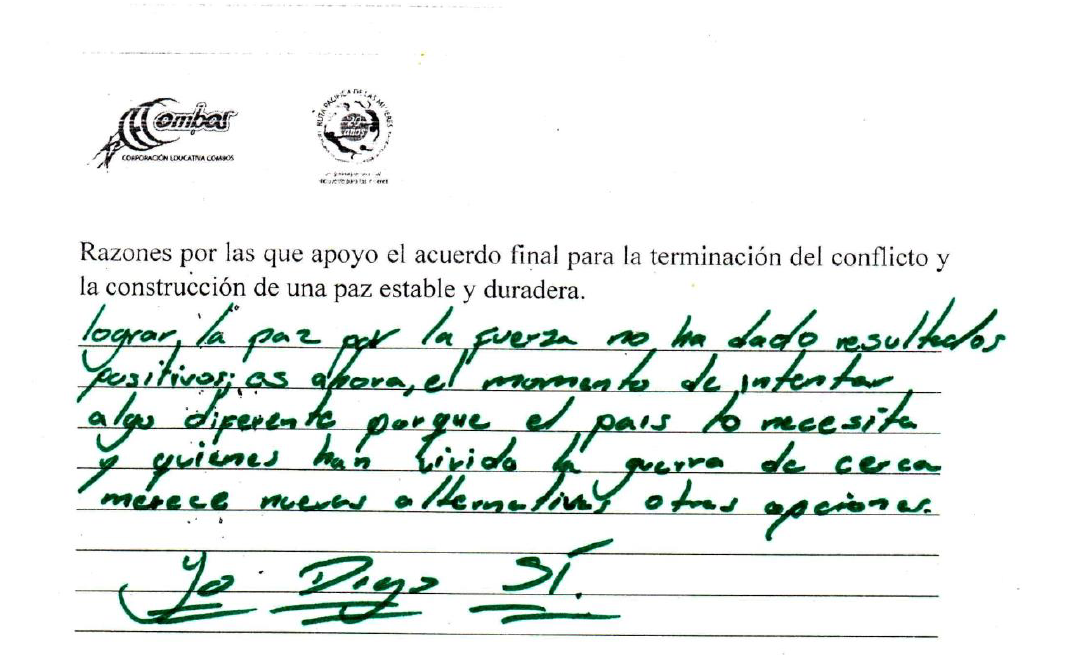 Combos
CORPORACIÓN EDUCATIVA COMBOS
RUTA PACÍFICA DE LAS MUJERES
20
años
Razones por las que apoyo el acuerdo final para la terminación del conflicto y
la construcción de una paz estable y duradera.
lograr, la paz por la fuerza no ha dado resultados
positivos; es ahora, el momento de intentar
algo diferente porque el pais lo necesita
y quienes han vivido la guerra de cerca
merece nuevas alternativas otras opciones.
Yo Digo SÍ.